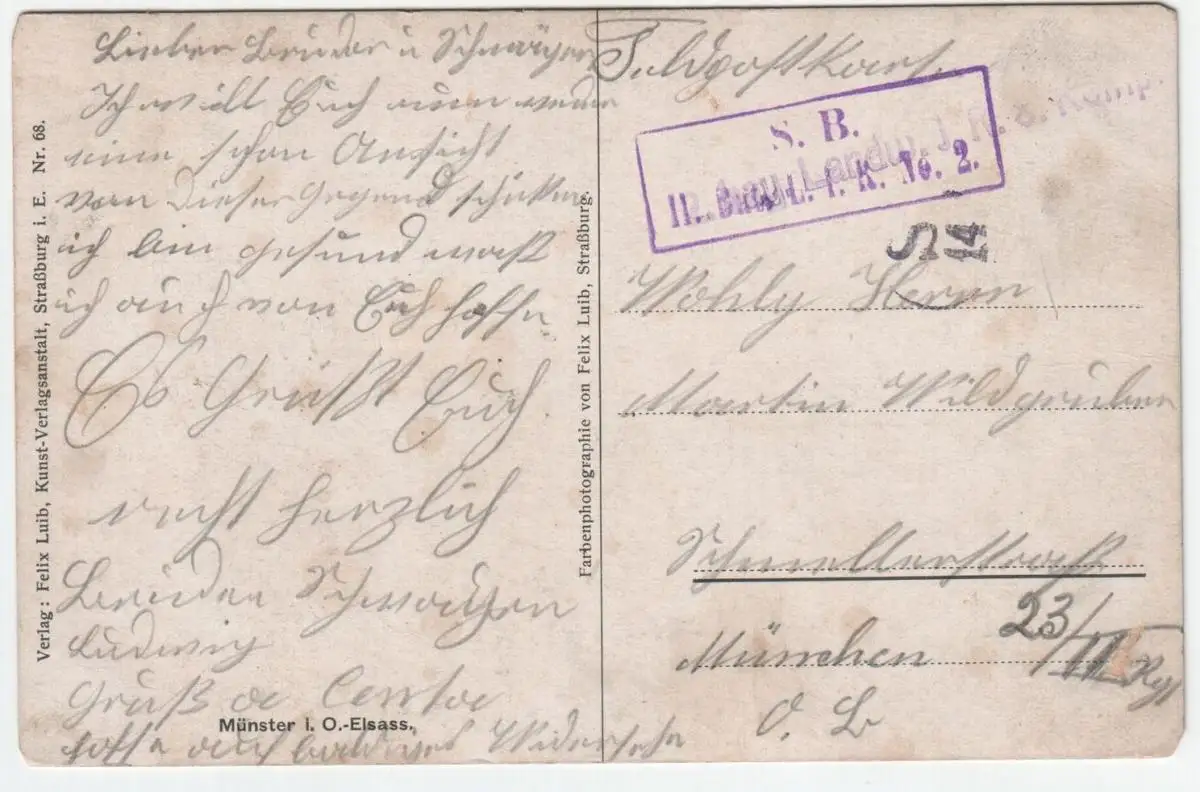 Lieber Bruder u Schwägerin
Ich will Euch nun wieder
eine schön Ansicht
von Dieser Gegend schicken
ich bin gesund was
ich auch von Euch hoffe
Es Grüßt Euch
recht herzlich
Bruder Schwager
Ludwig
Gruß
hoffe auf baldiges Widersehn
Münster i. O.-Elsass.
Verlag: Felix Luib, Kunst-Verlagsanstalt, Straßburg i. E. Nr. 68.
Farbenphotographie von Felix Luib, Straßburg.
Feldpostkarte
S. B.
Landw. J. R. 8. Komp.
No. 2.
S
14
Wohlg Herrn
Martin Wildgruber
Schmellerstraß
23/III
München
O. B